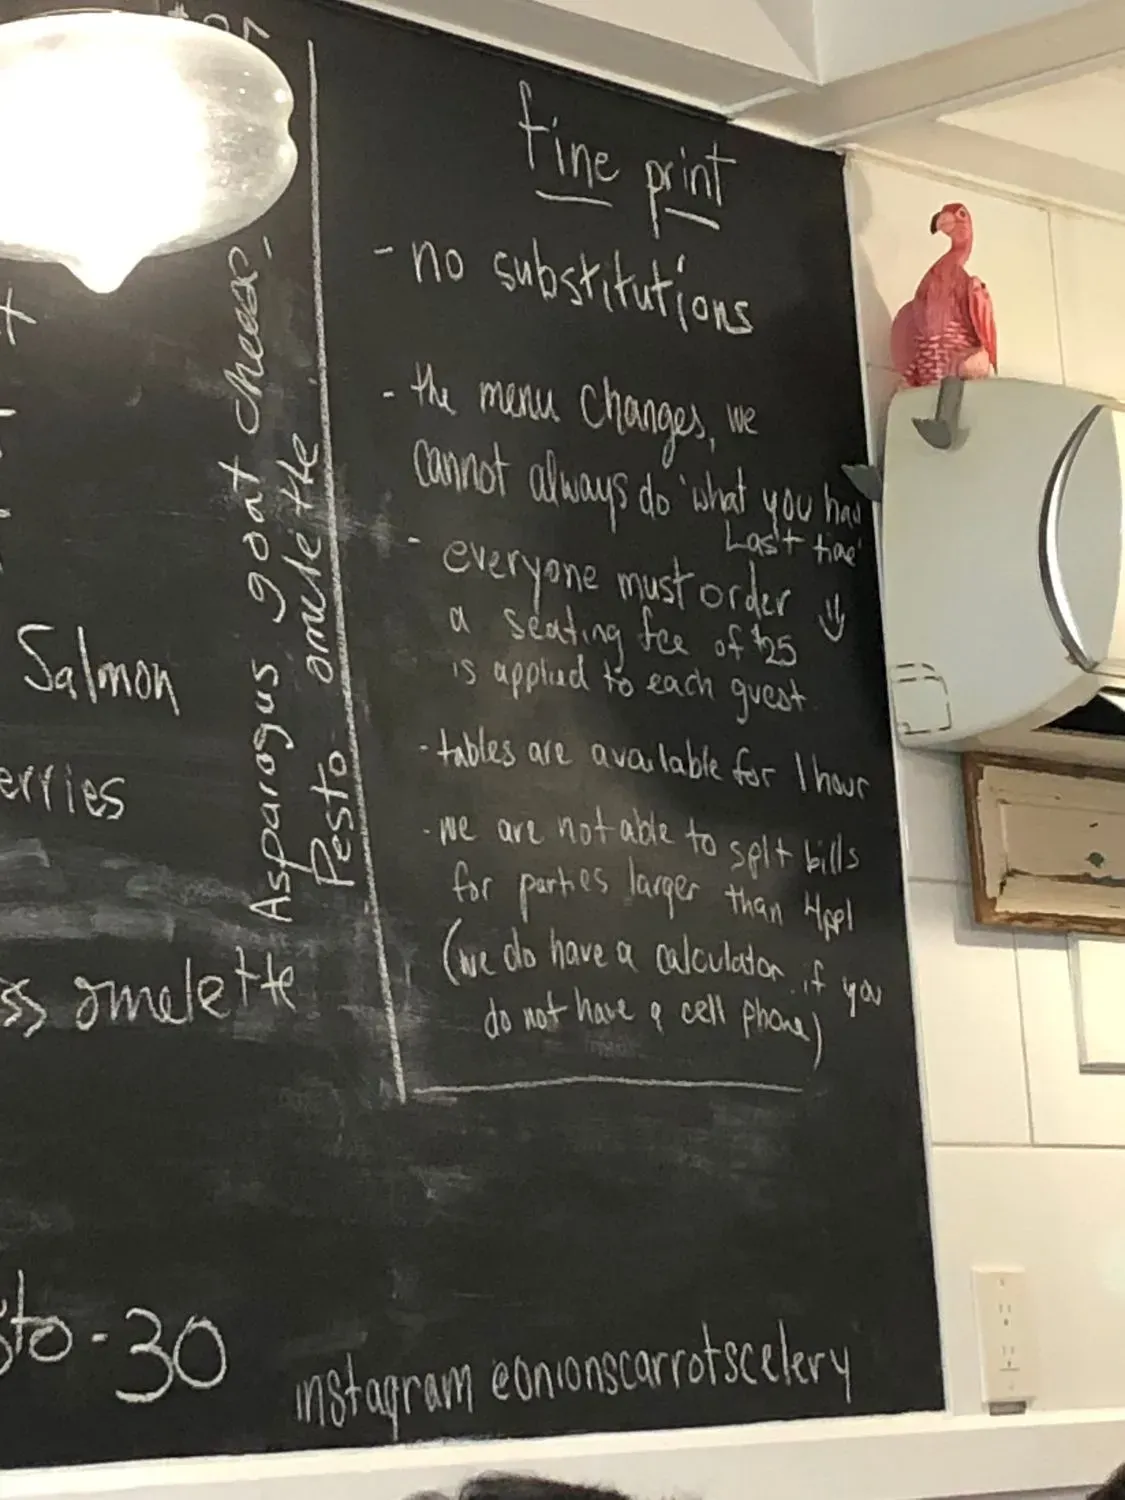 fine print
- no substitutions
- the menu changes, we
cannot always do 'what you had
Last time'
- everyone must order
a seating fee of $25
is applied to each guest.
- tables are available for 1 hour
- we are not able to splt bills
for parties larger than 4ppl
(we do have a calculator if you
do not have a cell phone)
Asparagus goat cheese,
Pesto omelette
Salmon
erries
ss omelette
sto - 30
instagram @onionscarrotscelery